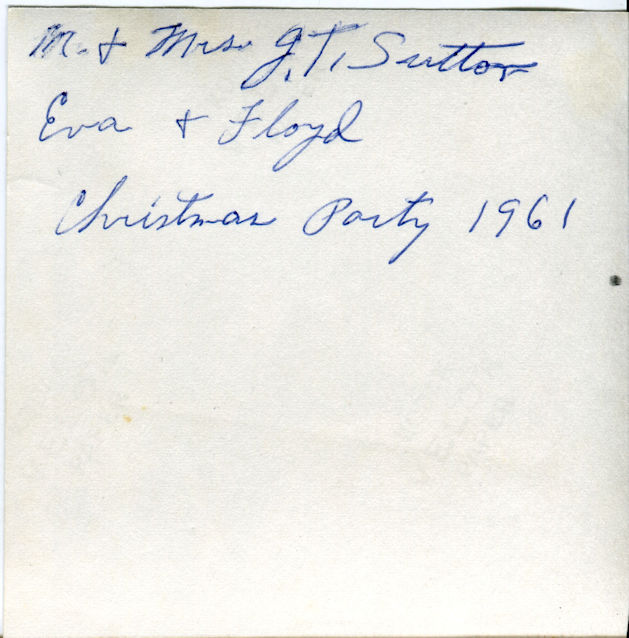 M. & Mrs. J. T. Sutton
Eva & Floyd
Christmas Party 1961